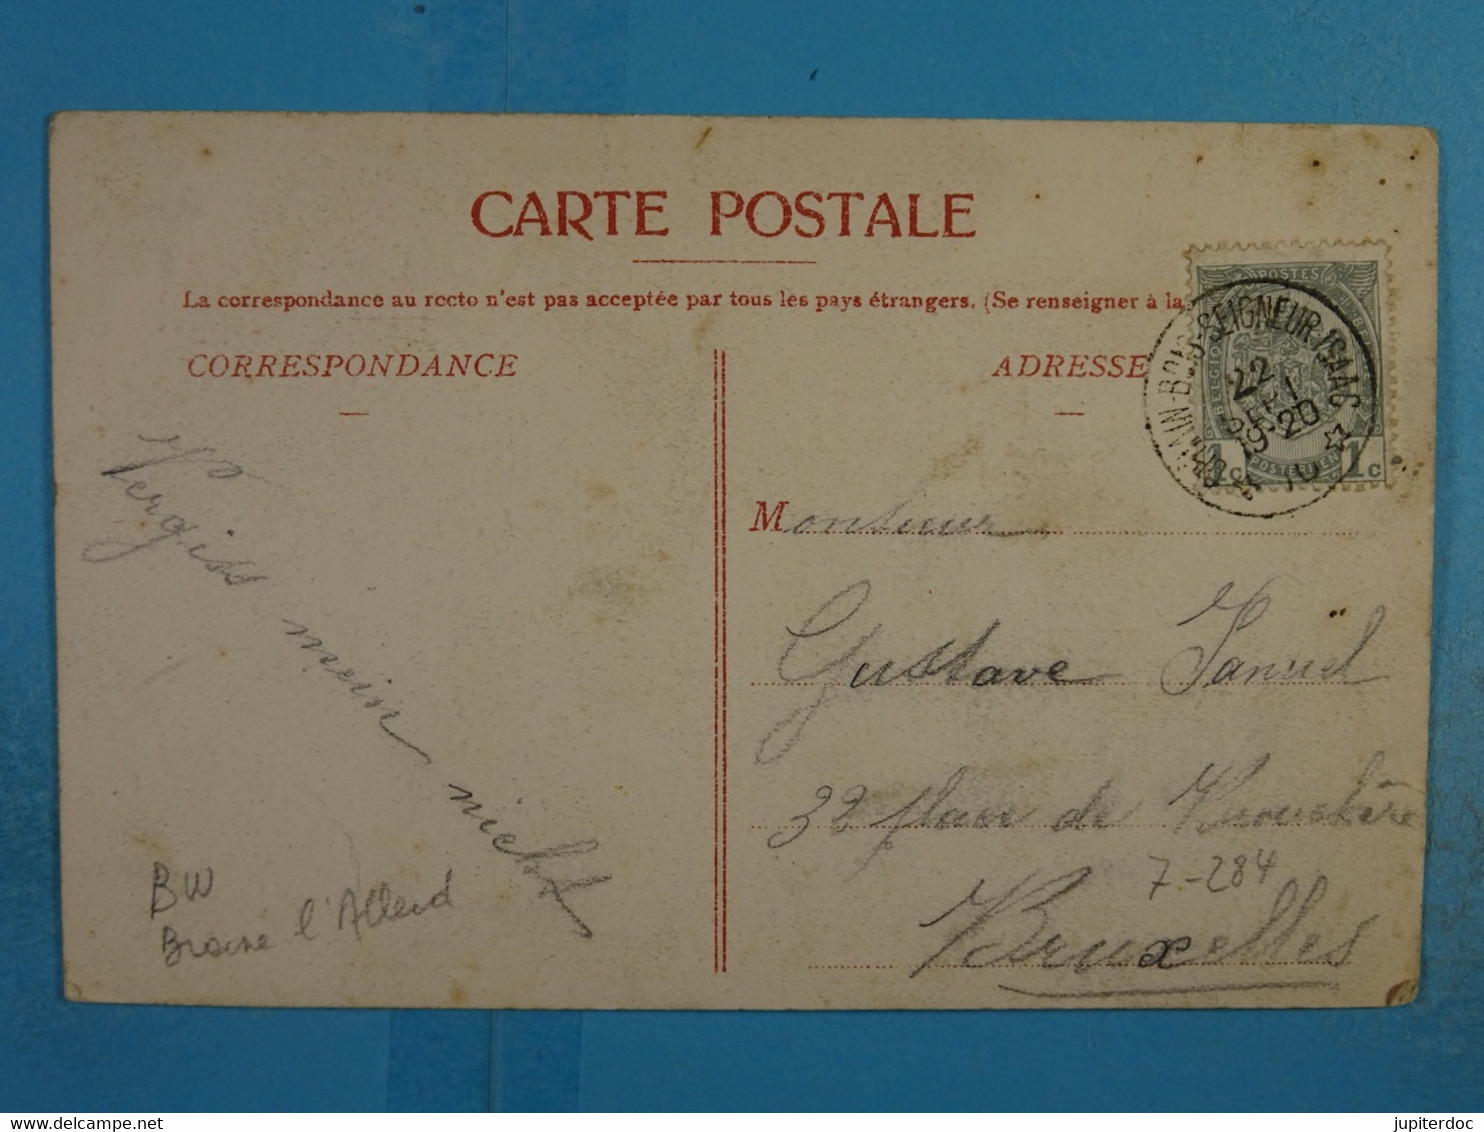 CARTE POSTALE
La correspondance au recto n'est pas acceptée par tous les pays étrangers. (Se renseigner à la
CORRESPONDANCE
ADRESSE
POSTES
BELGIQUE
POSTERIJEN
1c 1c
BOIS-SEIGNEUR-ISAAC
22
SEPT
19-20
10
Vergiss
mein
nicht
Monsieur
Gustave
32 place de
Bruxelles
7-284
BW
Braine l'Alleud
jupiterdoc